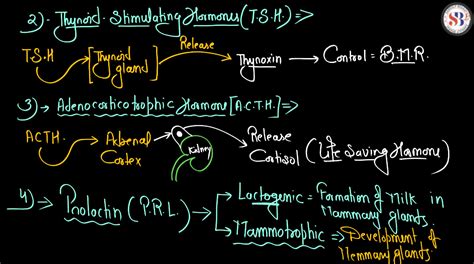 2) Thyroid Stimulating Hormones (T.S.H.) ⇒
T.S.H → [Thyroid gland] Release → Thyroxin → Control = B.M.R.
3) → Adenocorticotrophic Hormone [A.C.T.H.] ⇒
ACTH. → Adrenal Cortex Kidney → Release Cortisol (Life Saving Harmone)
4) → Prolactin (P.R.L.) → Lactogenic = Formation of Milk in Mammary glands.
→ Mammotrophic ⇒ Development of Memmary glands.